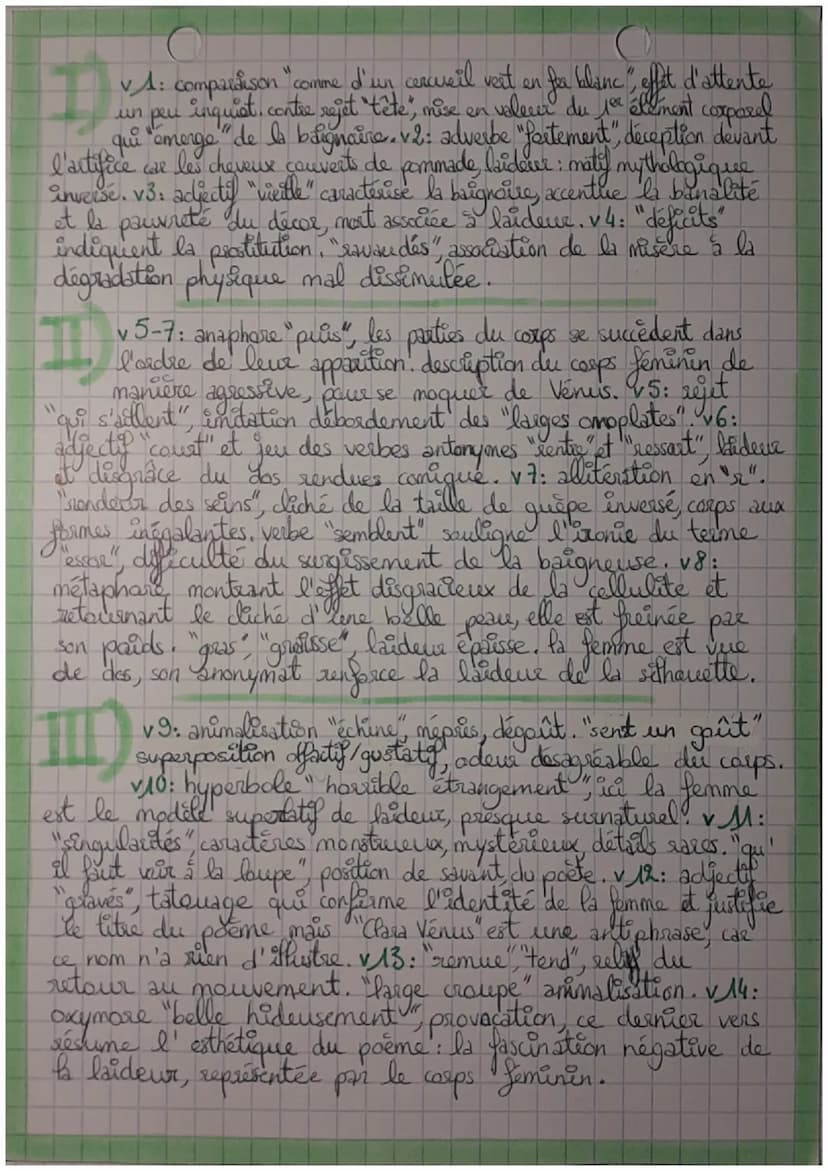 I) v1: comparaison "comme d'un cercueil vert en fer blanc", effet d'attente
un peu inquiet. contre rejet "tête", mise en valeur du 1er élément corporel
qui "émerge" de la baignoire. v2: adverbe "fortement", déception devant
l'artifice car les cheveux couverts de pommade, laideur : motif mythologique
inversé. v3: adjectif "vieille" caractérise la baignoire, accentue la banalité
et la pauvreté du décor, mort associée à laideur. v4: "déficits"
indiquent la prostitution. "ravaudés", association de la misère à la
dégradation physique mal dissimulée.
II) v5-7: anaphore "puis", les parties du corps se succèdent dans
l'ordre de leur apparition. description du corps féminin de
manière agressive, pour se moquer de Vénus. v5: rejet
"qui saillent", imitation débordement des "larges omoplates". v6:
adjectif "court" et jeu des verbes antonymes "rentre" et "ressort", laideur
et disgrâce du dos rendues comique. v7: allitération en "r".
"rondeur des seins", cliché de la taille de guêpe inversé, corps aux
formes inégalantes. verbe "semblent" souligne l'ironie du terme
"essor", difficulté du surgissement de la baigneuse. v8:
métaphore montrant l'effet disgracieux de la cellulite et
retournant le cliché d'une belle peau, elle est freinée par
son poids. "gras", "graisse", laideur épaisse. la femme est vue
de dos, son anonymat renforce la laideur de la silhouette.
III) v9: animalisation "échine", mépris, dégoût. "sent un goût"
superposition olfactif/gustatif, odeur désagréable du corps.
v10: hyperbole "horrible étrangement", ici la femme
est le modèle superlatif de laideur, presque surnaturel. v11:
"singularités", caractères monstrueux, mystérieux, détails rares. "qu'
il faut voir à la loupe", position de savant du poète. v12: adjectif
"gravés", tatouage qui confirme l'identité de la femme et justifie
le titre du poème mais "Clara Vénus" est une antiphrase, car
ce nom n'a rien d'illustre. v13: "remue", "tend", relatif du
retour au mouvement. "large croupe" animalisation. v14:
oxymore "belle hideusement", provocation, ce dernier vers
résume l'esthétique du poème : la fascination négative de
la laideur, représentée par le corps féminin.